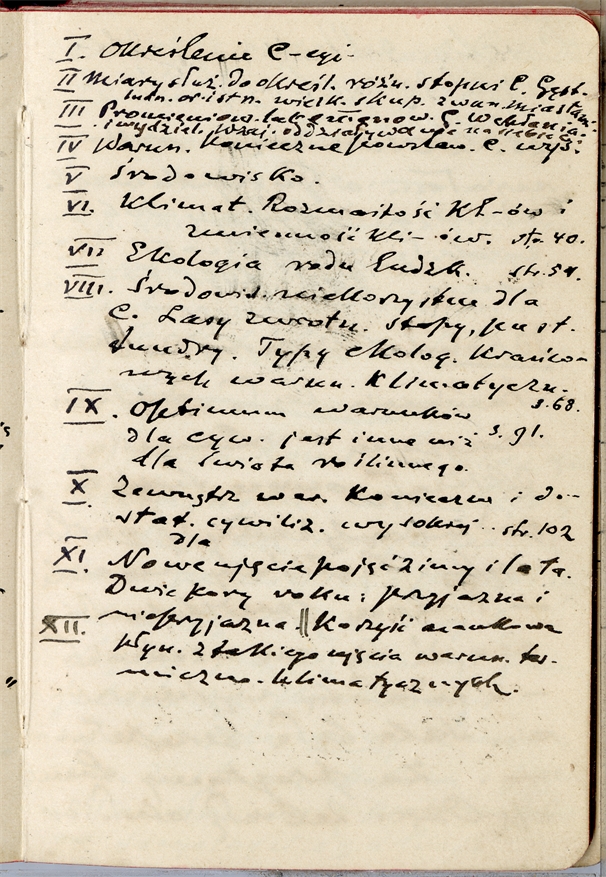 I. Określenie C-cyi
II Miary służ. do określ. różn. stopni C. Gęst.
ludn. or. istn. wielk. skup. zwan. miastem.
III Promieniow. tak zmianow. C. Wchłania.
i wydziel. wzaj. oddziaływanie na siebie C.
IV Warun. Konieczne powstaw. C. wyż.
V Środowisko.
VI. Klimat. Rozmaitość Kł-ów i
zmienność kli-ów. str. 40.
VII Ekologia rodu ludzk. str. 54.
VIII. Środowis. niekorzystne dla
C. Lasy zwrotn. stepy, pust.
tundry. Typy ekolog. krańco-
wych warun. Klimatyczn.
s. 68.
IX. Optimum warunków
dla cyw. jest inne niż s. 91.
dla świata roślinnego.
X. Zewnętrz war. Konieczne i do-
stat. cywiliz. wysokiej str. 102
dla
XI. Nowe ujęcie pojęć zimy i lata.
Dwie pory roku: przyjazna i
nieprzyjazna ||
XII. Korzyść naukowa
płyn. z takiego ujęcia warun. ter-
miczno-klimatycznych.